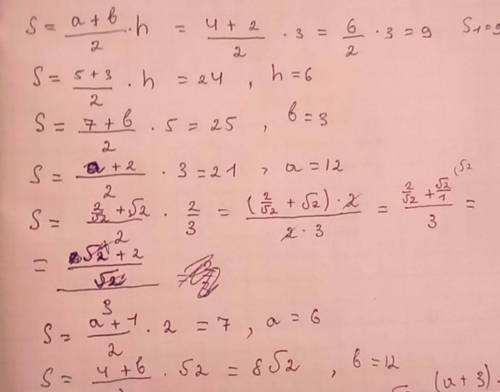 S = (a+b)/2 · h = (4+2)/2 · 3 = 6/2 · 3 = 9   S₁=9
S = (5+3)/2 · h = 24, h=6
S = (7+b)/2 · 5 = 25, b=3
S = (a+2)/2 · 3 = 21, a=12
S = (2/√2 + √2)/2 · 2/3 = ((2/√2 + √2)·2)/(2·3) = (2/√2 + √2/1 (√2)/3 =
= ((2+2)/√2)/3
S = (a+1)/2 · 2 = 7, a=6
S = (4+b)/2 · √2 = 8√2, b=12
(a+3)